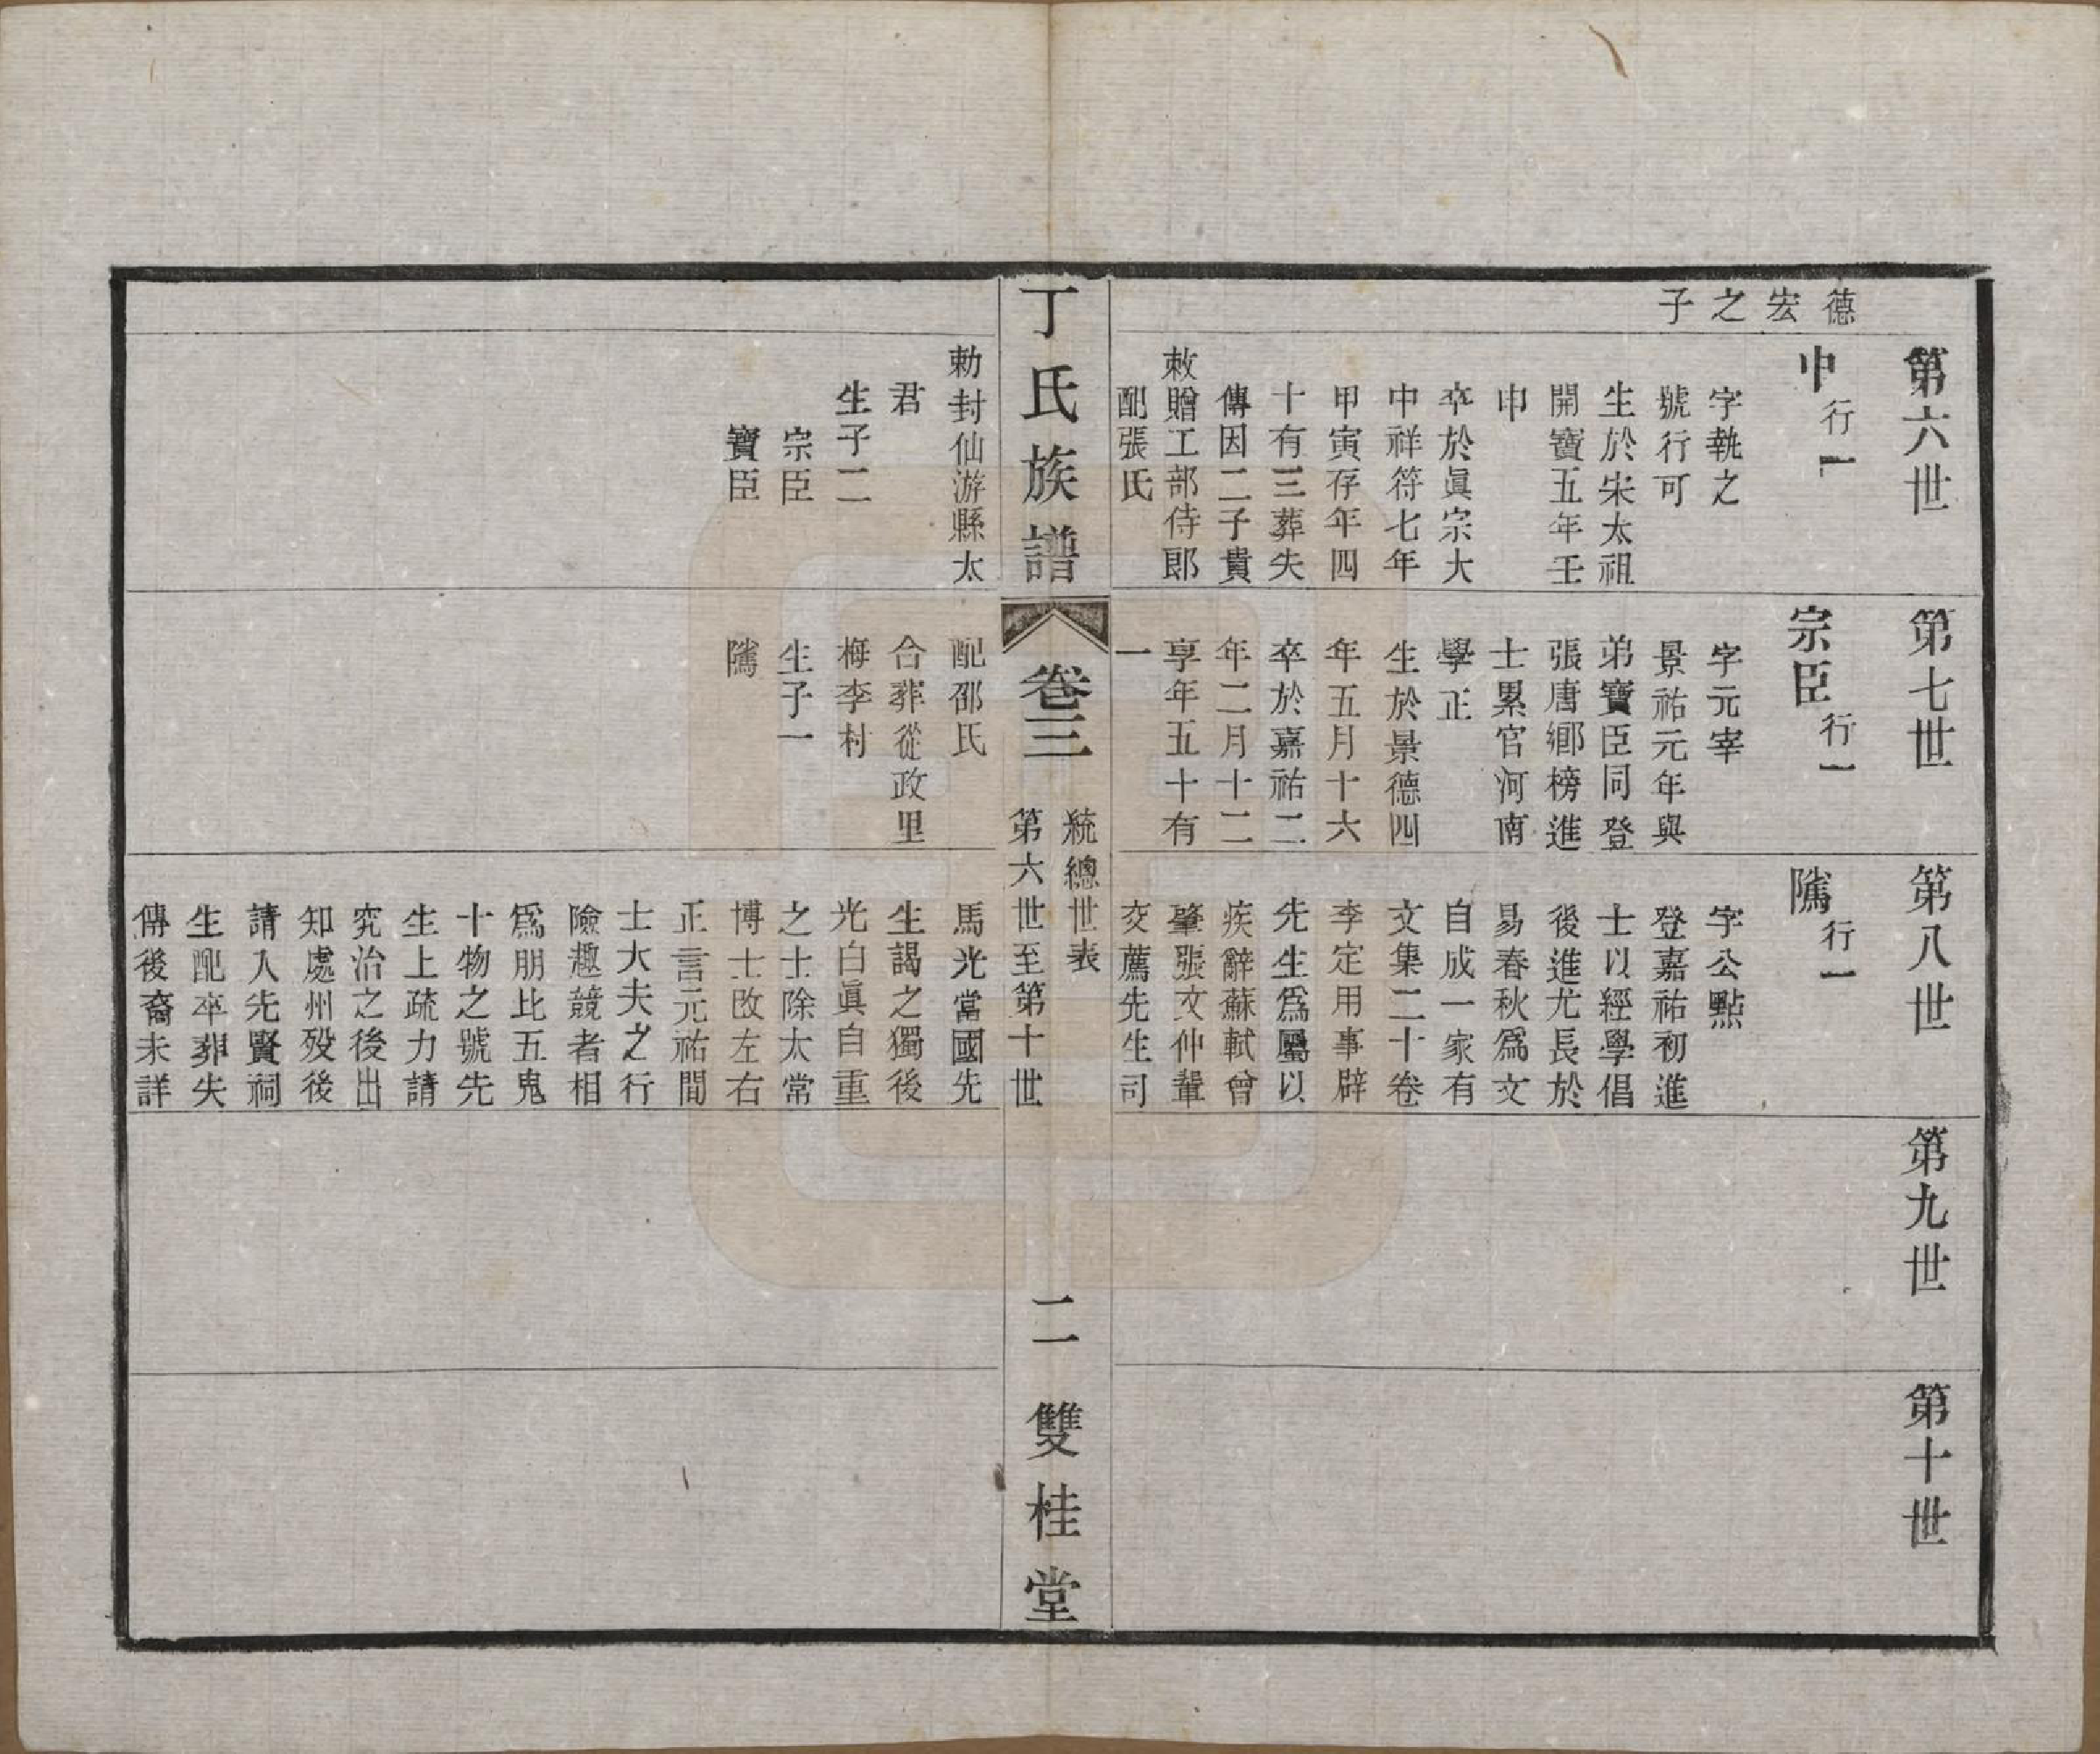 德宏之子
第六世
中 行一
字執之
號行可
生於宋太祖
開寶五年壬
申
卒於眞宗大
中祥符七年
甲寅存年四
十有三葬失
傳因二子貴
敕贈工部侍郎
配張氏
勅封仙游縣太
君
生子二
宗臣
寶臣
第七世
宗臣 行一
字元宰
景祐元年與
弟寶臣同登
張唐鄉榜進
士累官河南
學正
生於景德四
年五月十六
卒於嘉祐二
年二月十二
享年五十有
一
配邵氏
合葬從政里
梅李村
生子一
隲
第八世
隲 行一
字公點
登嘉祐初進
士以經學倡
後進尤長於
易春秋爲文
自成一家有
文集二十卷
李定用事辟
先生爲屬以
疾辭蘇軾曾
肇張文仲輩
交薦先生司
馬光當國先
生謁之獨後
光白眞自重
之士除太常
博士改左右
正言元祐間
士大夫之行
險趣競者相
爲朋比五鬼
十物之號先
生上疏力請
究治之後出
知處州歿後
請入先賢祠
生配卒葬失
傳後裔未詳
第九世
第十世
丁氏族譜
卷三
統總世表
第六世至第十世
二
雙桂堂